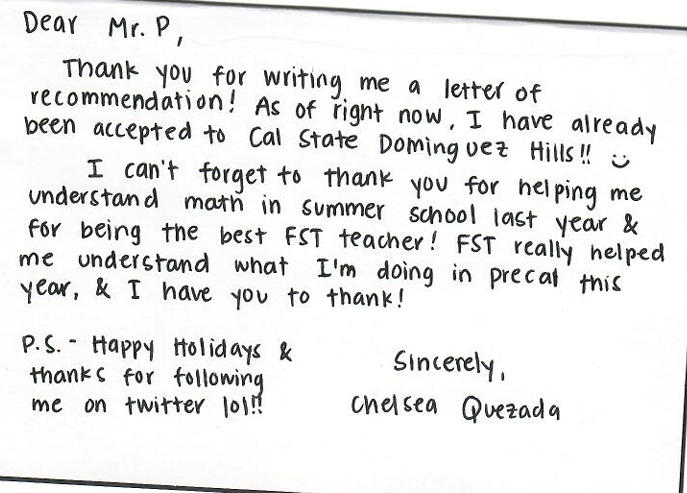 Dear Mr. P,
Thank you for writing me a letter of
recommendation! As of right now, I have already
been accepted to Cal State Dominguez Hills!! :)
I can't forget to thank you for helping me
understand math in summer school last year &
for being the best FST teacher! FST really helped
me understand what I'm doing in precal this
year, & I have you to thank!
P.S. - Happy Holidays &
thanks for following
me on twitter lol!!
Sincerely,
Chelsea Quezada